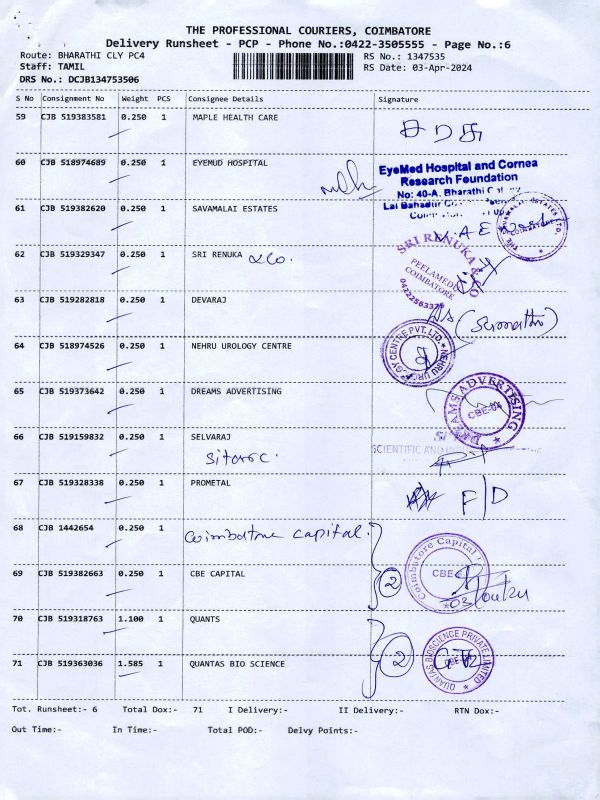 THE PROFESSIONAL COURIERS, COIMBATORE
Delivery Runsheet - PCP - Phone No.:0422-3505555 - Page No.:6
Route: BHARATHI CLY PC4 RS No.: 1347535
Staff: TAMIL RS Date: 03-Apr-2024
DRS No.: DCJB134753506
S No Consignment No Weight PCS Consignee Details Signature
59 CJB 519383581 0.250 1 MAPLE HEALTH CARE
60 CJB 518974689 0.250 1 EYEMUD HOSPITAL
EyeMed Hospital and Cornea
Research Foundation
No: 40-A, Bharathi
Lal Bahadur
61 CJB 519382620 0.250 1 SAVAMALAI ESTATES
62 CJB 519329347 0.250 1 SRI RENUKA &Co.
SRI RENUKA
PEELAMEDU
COIMBATORE
63 CJB 519282818 0.250 1 DEVARAJ
(Sumathi)
64 CJB 518974526 0.250 1 NEHRU UROLOGY CENTRE
CENTRE PVT. LTD. ★ NEHRU
65 CJB 519373642 0.250 1 DREAMS ADVERTISING
DREAMS ADVERTISING
CBE-04
66 CJB 519159832 0.250 1 SELVARAJ
Sitarc.
SCIENTIFIC AND
67 CJB 519328338 0.250 1 PROMETAL
F/D
68 CJB 1442654 0.250 1 Coimbatore capital.
69 CJB 519382663 0.250 1 CBE CAPITAL
2
Coimbatore Capital
CBE
70 CJB 519318763 1.100 1 QUANTS
2
71 CJB 519363036 1.585 1 QUANTAS BIO SCIENCE
QUANTAS BIOSCIENCE PRIVATE LIMITED
Tot. Runsheet:- 6 Total Dox:- 71 I Delivery:- II Delivery:- RTN Dox:-
Out Time:- In Time:- Total POD:- Delvy Points:-